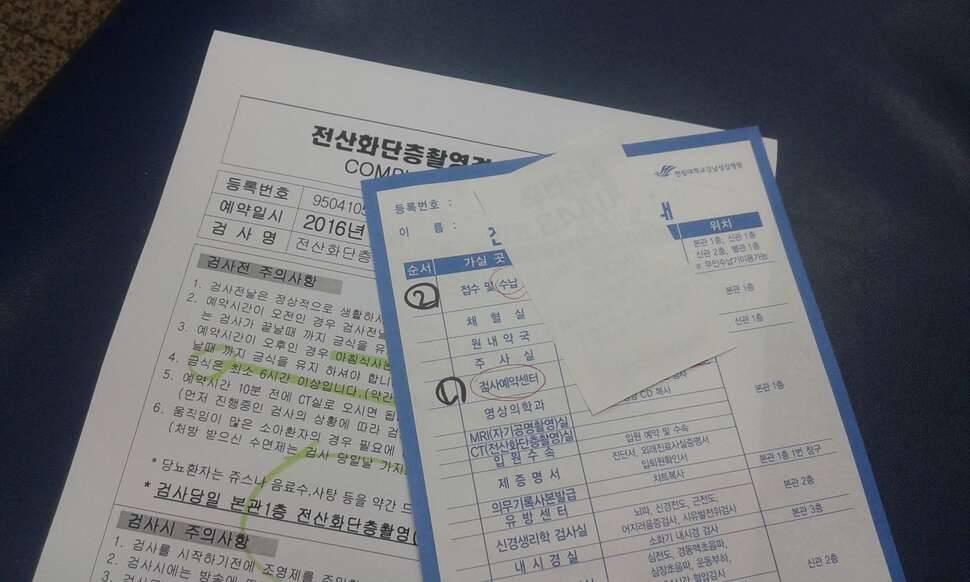 전산화단층촬영
COMP
등록번호 9504105
예약일시 2016년
검 사 명 전산화단층
검사전 주의사항
1. 검사전날은 정상적으로 생활하시
2. 예약시간이 오전인 경우 검사전날
는 검사가 끝날때 까지 금식을 유지
3. 예약시간이 오후인 경우 아침식사는
날때 까지 금식을 유지 하셔야 합니
4. 금식은 최소 6시간 이상입니다.(약간
5. 예약시간 10분 전에 CT실로 오시면 됩
(먼저 진행중인 검사의 상황에 따라 검
6. 움직임이 많은 소아환자의 경우 필요에
(처방 받으신 수면제는 검사 당일날 가지
* 당뇨환자는 쥬스나 음료수,사탕 등을 약간 드
* 검사당일 본관1층 전산화단층촬영(
검사시 주의사항
1. 검사를 시작하기전에 조영제를 주입
2. 검사시에는 방송에 따
한림대학교강남성심병원
등록번호 :
이 름 :
내
순서 가실 곳 위치
② 접수 및 수납
본관 1층, 신관 1층
신관 2층, 별관 1층
※ 무인수납기이용가능
채 혈 실 본관 1층
원 내 약 국
주 사 실 신관 1층
① 검사예약센터
CD 복사
영상의학과
본관 1층
MRI(자기공명촬영)실
CT(전산화단층촬영)실
입 원 수 속 입원 예약 및 수속
제 증 명 서 진단서, 외래진료사실증명서
입퇴원확인서
본관 1층 1번 창구
의무기록사본발급 차트복사
유 방 센 터 본관 2층
신경생리학 검사실 뇌파, 신경전도, 근전도,
어지러움증검사, 시유발전위검사
본관 3층
내 시 경 실 소화기 내시경 검사
심전도, 경동맥초음파,
심장초음파, 운동부하,
신관 2층
혈압검사